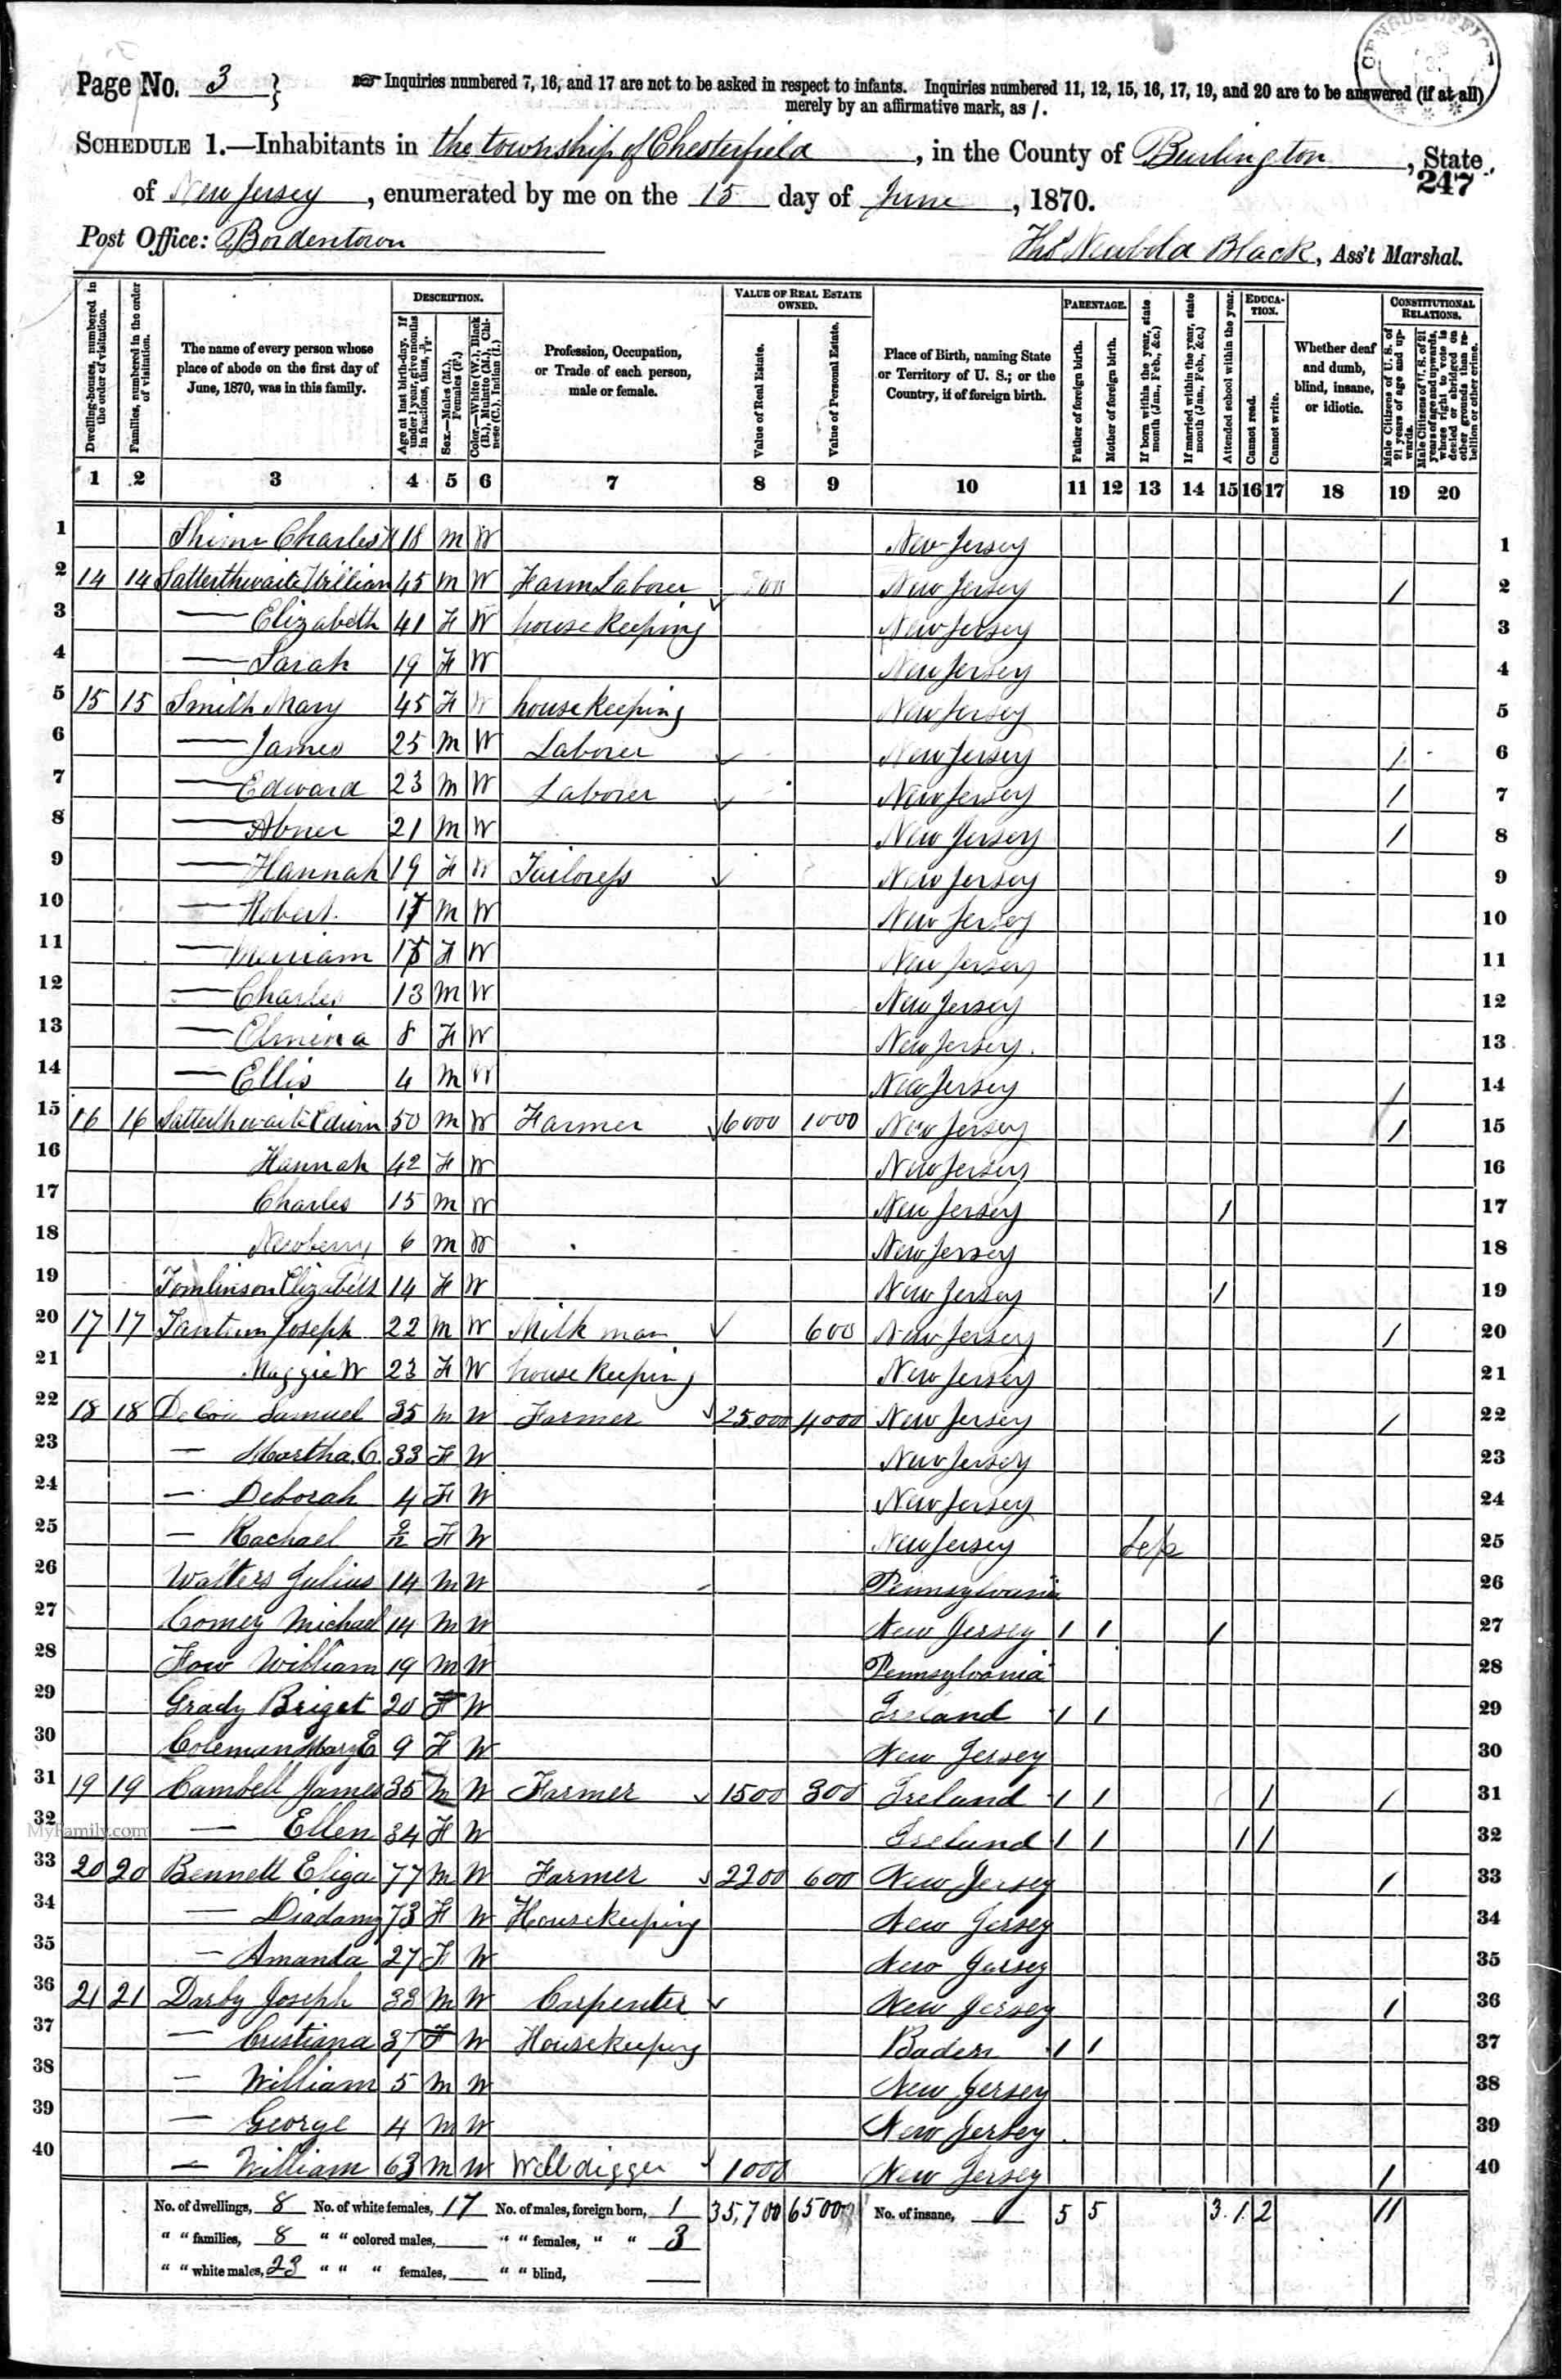 Page No. 3
Inquiries numbered 7, 16, and 17 are not to be asked in respect to infants. Inquiries numbered 11, 12, 15, 16, 17, 19, and 20 are to be answered (if at all)
merely by an affirmative mark, as /.
SCHEDULE 1.—Inhabitants in the township of Chesterfield, in the County of Burlington, State
247
of New Jersey, enumerated by me on the 15 day of June, 1870.
Post Office: Bordentown
Thos Newbold Black, Ass't Marshal.
Dwelling-houses, numbered in the order of visitation.
Families, numbered in the order of visitation.
The name of every person whose place of abode on the first day of June, 1870, was in this family.
DESCRIPTION.
Age at last birth-day. If under 1 year, give months in fractions, thus, 3/12.
Sex.—Males (M.), Females (F.)
Color.—White (W.), Black (B.), Mulatto (M.), Chinese (C.), Indian (I.)
Profession, Occupation, or Trade of each person, male or female.
VALUE OF REAL ESTATE OWNED.
Value of Real Estate.
Value of Personal Estate.
Place of Birth, naming State or Territory of U. S.; or the Country, if of foreign birth.
PARENTAGE.
Father of foreign birth.
Mother of foreign birth.
If born within the year, state month (Jan., Feb., &c.)
If married within the year, state month (Jan., Feb., &c.)
Attended school within the year.
EDUCATION.
Cannot read.
Cannot write.
Whether deaf and dumb, blind, insane, or idiotic.
CONSTITUTIONAL RELATIONS.
Male Citizens of U. S. of 21 years of age and upwards.
Male Citizens of U. S. of 21 years of age and upwards, whose right to vote is denied or abridged on other grounds than rebellion or other crime.
1 2 3 4 5 6 7 8 9 10 11 12 13 14 15 16 17 18 19 20
1 Charles 18 M W New Jersey 1
2 14 14 Satterthwaite William 45 M W Farm Laborer New Jersey / 2
3 — Elizabeth 41 F W house keeping New Jersey 3
4 — Sarah 19 F W New Jersey 4
5 15 15 Smith Mary 45 F W housekeeping New Jersey 5
6 — James 25 M W Laborer New Jersey / 6
7 — Edward 23 M W Laborer New Jersey / 7
8 — Abner 21 M W New Jersey / 8
9 — Hannah 19 F W Tailoress New Jersey 9
10 — Robert 17 M W New Jersey 10
11 — Merriam 15 F W New Jersey 11
12 — Charles 13 M W New Jersey 12
13 — Elmina 8 F W New Jersey 13
14 — Ellis 4 M W New Jersey / 14
15 16 16 Satterthwaite Edwin 50 M W Farmer 6000 1000 New Jersey / 15
16 Hannah 42 F W New Jersey 16
17 Charles 15 M W New Jersey / 17
18 Newberry 6 M W New Jersey 18
19 Tomlinson Elizabeth 14 F W New Jersey / 19
20 17 17 Tantum Joseph 22 M W Milk man 600 New Jersey / 20
21 Maggie W 23 F W house keeping New Jersey 21
22 18 18 DeCou Samuel 35 M W Farmer 25000 4000 New Jersey / 22
23 — Martha C. 33 F W New Jersey 23
24 — Deborah 4 F W New Jersey 24
25 — Rachael 9/12 F W New Jersey Sep 25
26 Walters Julius 14 M W Pennsylvania 26
27 Comey Michael 14 M W New Jersey / / / 27
28 William 19 M W Pennsylvania 28
29 Grady Briget 20 F W Ireland / / 29
30 Coleman Mary E 9 F W New Jersey 30
31 19 19 Cambell James 35 M W Farmer 1500 300 Ireland / / / / 31
32 — Ellen 34 F W Ireland / / / / 32
33 20 20 Bennett Eliga 77 M W Farmer 2200 600 New Jersey / 33
34 — 73 F W Housekeeping New Jersey 34
35 — Amanda 27 F W New Jersey 35
36 21 21 Darby Joseph 33 M W Carpenter New Jersey / 36
37 — Cristiana 37 F W Housekeeping Baden / / 37
38 — William 5 M W New Jersey 38
39 — George 4 M W New Jersey 39
40 — William 63 M W Well digger 1000 New Jersey / 40
MyFamily.com
No. of dwellings, 8 No. of white females, 17 No. of males, foreign born, 1 35,700 6500 No. of insane, 5 5 3 1 2 11
" " families, 8 " " colored males, " " females, " " 3
" " white males, 23 " " " females, " " blind,